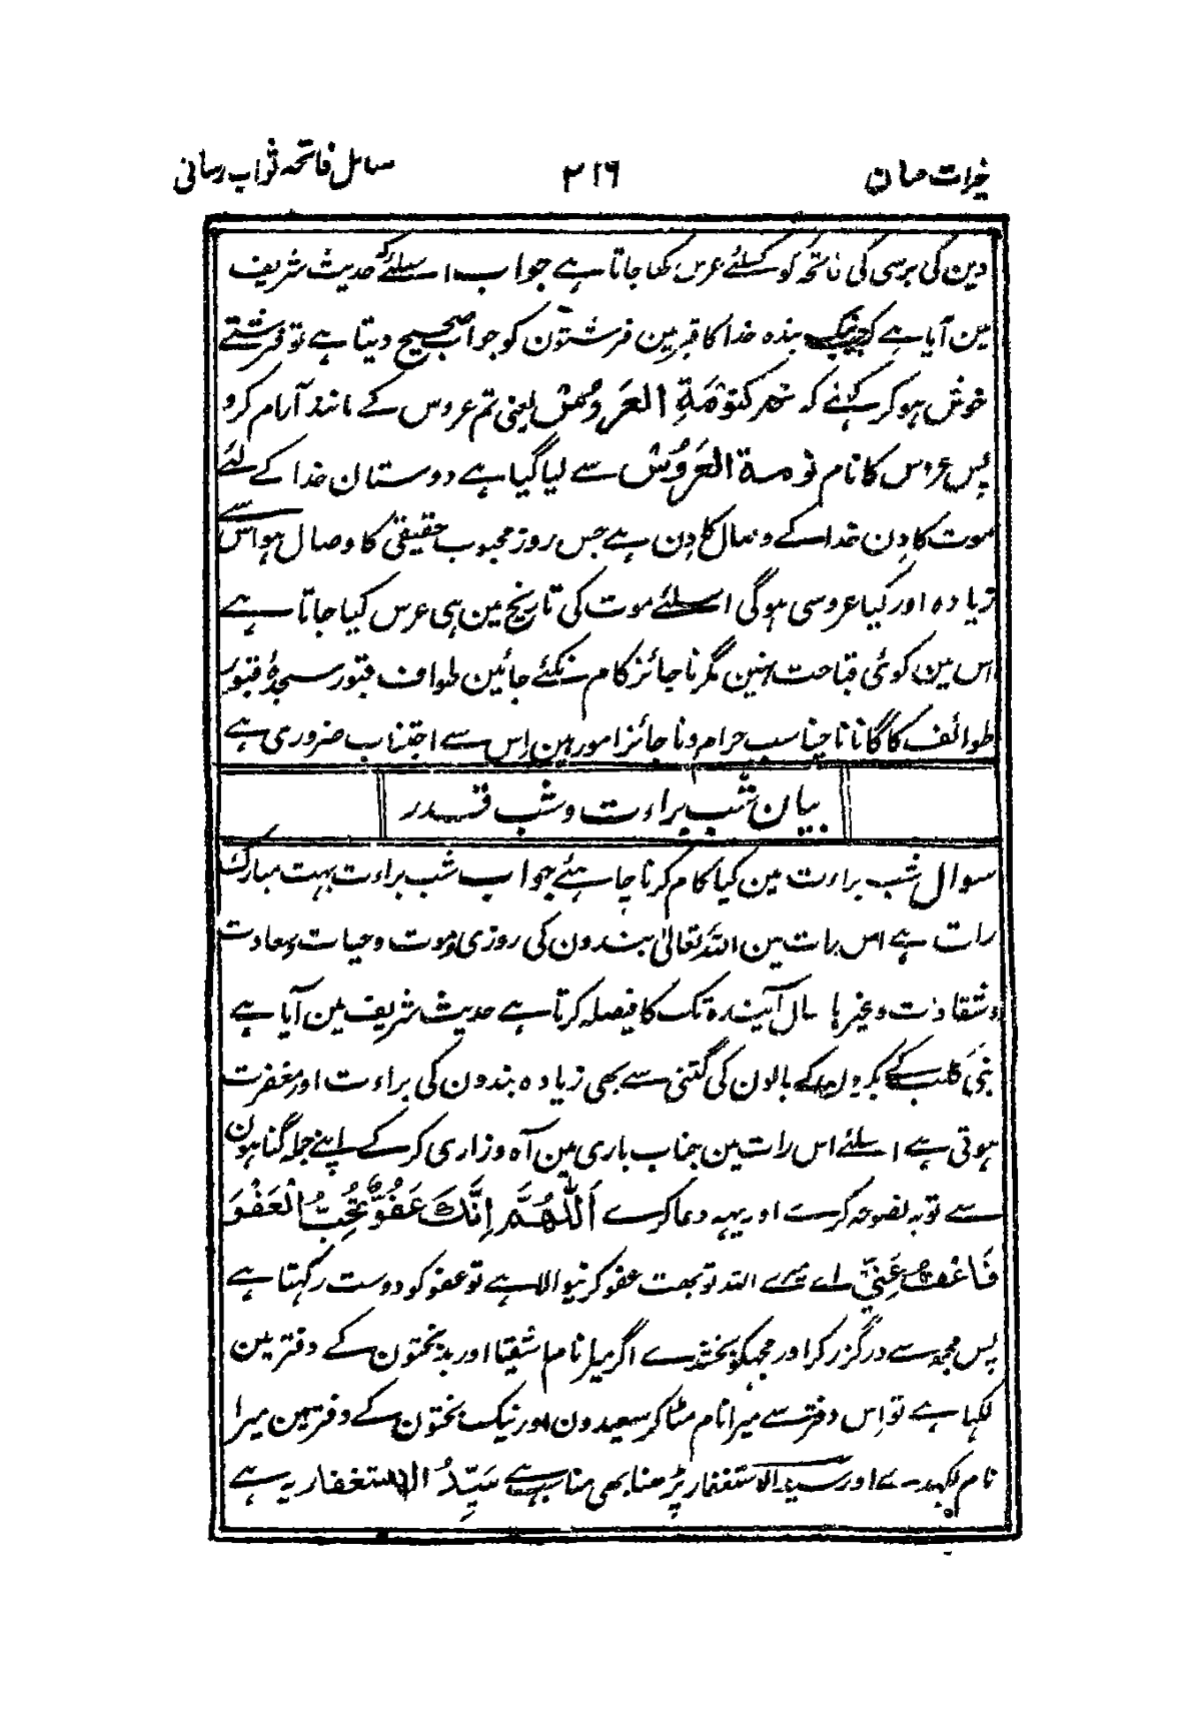 خیرات حسان ۲۱۶ مسائل فاتحہ ثواب رسانی
دین کی برسی کی فاتحہ کو کسلئے عرس کہا جاتا ہے جواب اسلئے کہ حدیث شریف
مین آیا ہے کہ جب نیک بندہ خدا کا قبر مین فرشتون کو جواب صحیح دیتا ہے تو فرشتے
خوش ہوکر کہتے کہ نم کنومۃ العروس یعنی تم عروس کے مانند آرام کرو
پس عرس کا نام نومۃ العروس سے لیا گیا ہے دوستان خدا کے لئے
موت کا دن خدا سے کے وصال کا دن ہے جس روز محبوب حقیقی کا وصال ہو اس سے
زیادہ اور کیا عروسی ہوگی اسلئے موت کی تاریخ مین ہی عرس کیا جاتا ہے
اس مین کوئی قباحت نہین مگر ناجائز کام نکئے جائین طواف قبور سجدۂ قبور
طوائف کا گانا ناچنا سب حرام و ناجائز امور ہین اس سے اجتناب ضروری ہے
بیان شب براءت و شب قدر
سوال شب براءت مین کیا کام کرنا چاہئے جواب شب براءت بہت مبارک
رات ہے اس رات مین اللہ تعالیٰ بندون کی روزی و موت و حیات و سعادت
و شقاوت و غیرہا سال آیندہ تک کا فیصلہ کرتا ہے حدیث شریف مین آیا ہے
بنی کلب کے بکریون کے بالون کی گنتی سے بھی زیادہ بندون کی براءت اور مغفرت
ہوتی ہے اسلئے اس رات مین جناب باری مین آہ و زاری کر کے اپنے جملہ گناہون
سے توبہ نصوحہ کرے اور یہہ دعا کرے اَللّٰهُمَّ اِنَّكَ عَفُوٌّ تُحِبُّ الْعَفْوَ
فَاعْفُ عَنِّيْ اے میرے اللہ تو بہت عفو کرنیوالا ہے تو عفو کو دوست رکہتا ہے
پس مجھ سے درگزر کر اور مجہکو بخشدے اگر میرا نام اشقیا اور بدبختون کے دفتر مین
لکہا ہے تو اس دفتر سے میرا نام مٹا کر سعیدون اور نیک بختون کے دفتر مین میرا
نام لکہدے اور سید الاستغفار پڑھنا بھی مناسب ہے سَیِّدُ الاستغفار یہ ہے